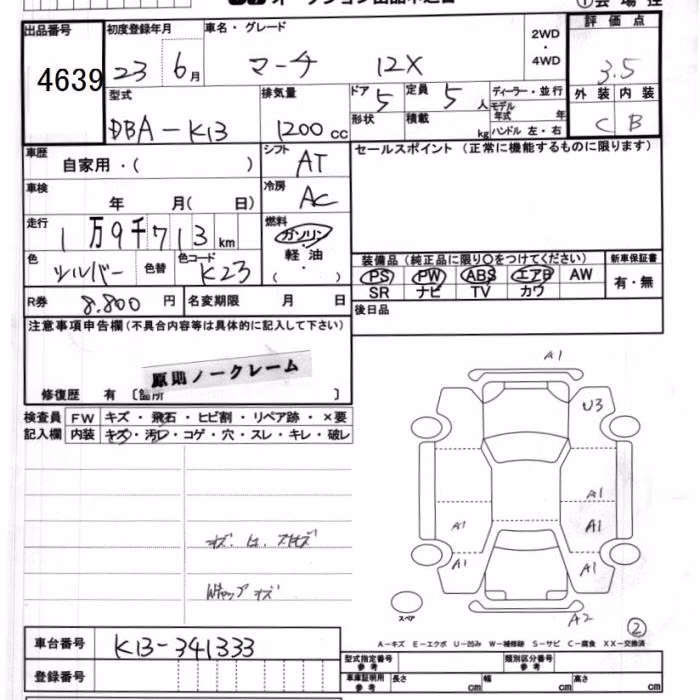 出品番号 初度登録年月 車名・グレード 2WD・4WD 評価点
4639 23 6月 マーチ 12X 3.5
型式 排気量 ドア 5 定員 5人 ディーラー・並行 外装 内装
DBA-K13 1200cc 形状 積載 kg モデル年式 年 C B
ハンドル 左・右
車歴 自家用・( ) シフト AT セールスポイント (正常に機能するものに限ります)
車検 年 月( 日) 冷房 AC
走行 1万9千713km 燃料 ガソリン・軽油・( )
装備品(純正品に限り○をつけてください) 新車保証書
色 シルバー 色替 色コード K23 PS PW ABS エアB AW 有・無
SR ナビ TV カワ
R券 8.800円 名変期限 月 日 後日品
注意事項申告欄(不具合内容等は具体的に記入して下さい)
原則ノークレーム
修復歴 有 〔箇所 〕
検査員 FW キズ・飛石・ヒビ割・リペア跡・×要
記入欄 内装 キズ・汚レ・コゲ・穴・スレ・キレ・破レ
A1
U3
A1
A1 A1
A1 A1
スペア
A2
②
A-キズ E-エクボ U-凹み W-補修跡 S-サビ C-腐食 XX-交換済
車台番号 K13-341333
型式指定番号 参考 類別区分番号 参考
登録番号 車庫証明用 参考 長さ cm 幅 cm 高さ cm